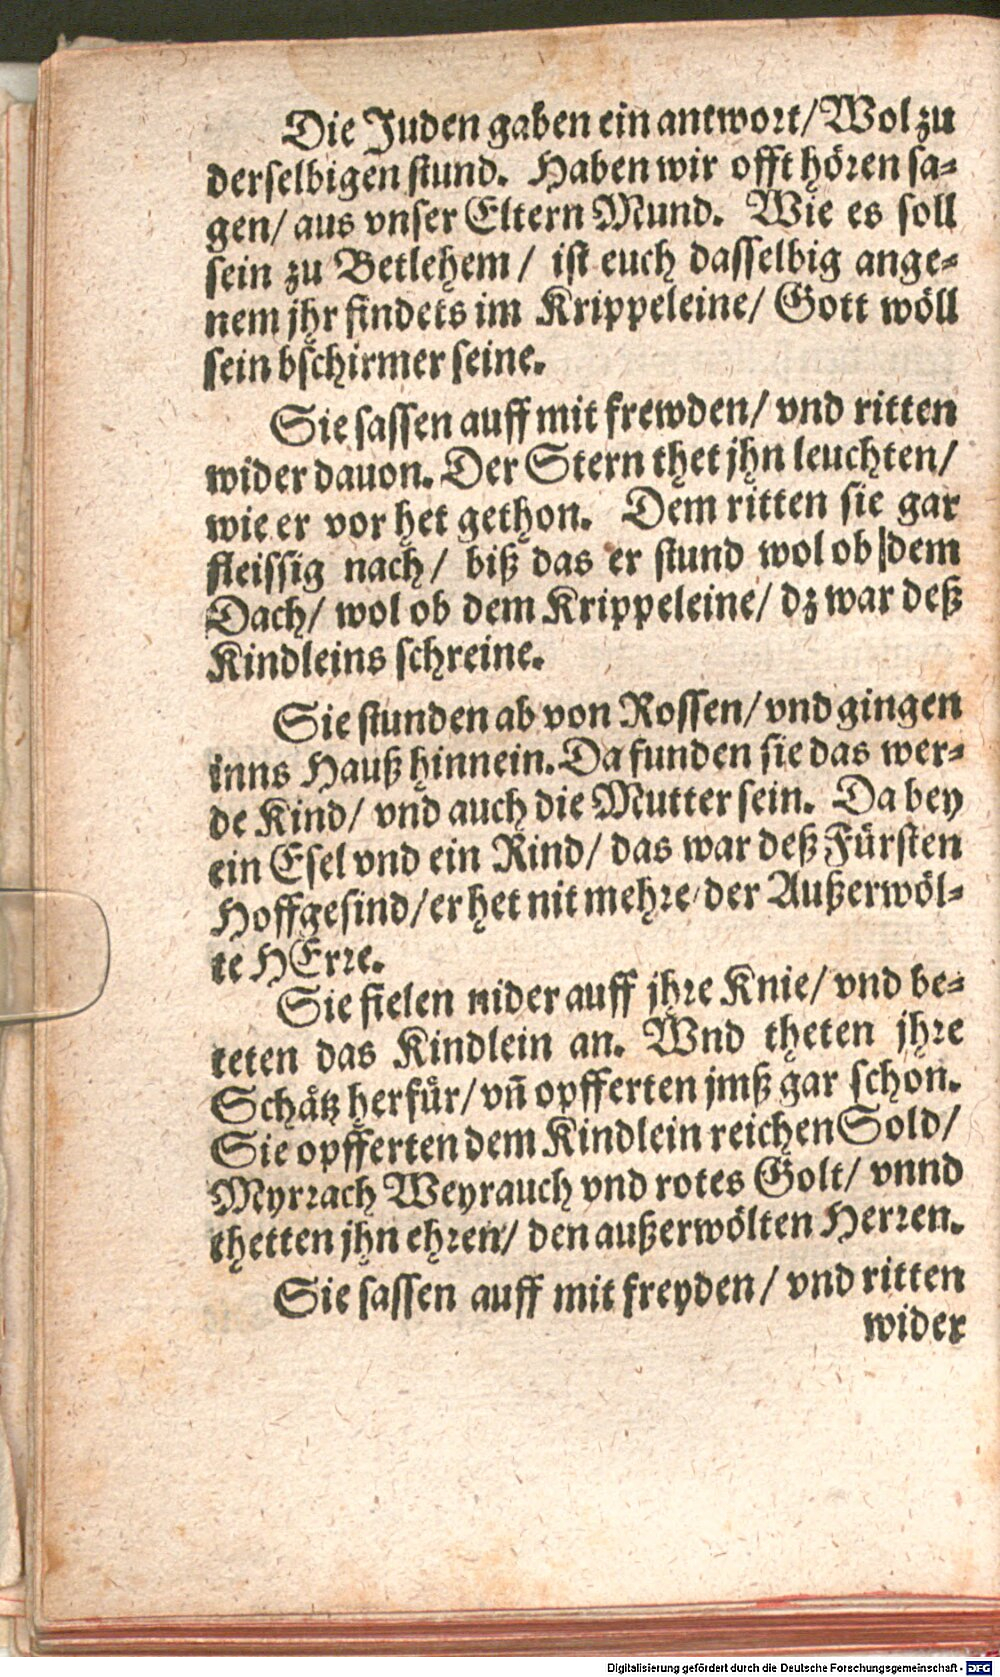 Die Juden gaben ein antwort/ Wol zu
derselbigen stund. Haben wir offt hören sa-
gen/ aus vnser Eltern Mund. Wie es soll
sein zu Betlehem/ ist euch dasselbig ange-
nem jhr findets im Krippeleine/ Gott wöll
sein bschirmer seine.
Sie sassen auff mit frewden/ vnd ritten
wider dauon. Der Stern thet jhn leuchten/
wie er vor het gethon. Dem ritten sie gar
fleissig nach/ biß das er stund wol ob dem
Dach/ wol ob dem Krippeleine/ dz war deß
Kindleins schreine.
Sie stunden ab von Rossen/ vnd gingen
inns Hauß hinnein. Da funden sie das wer-
de Kind/ vnd auch die Mutter sein. Da bey
ein Esel vnd ein Rind/ das war deß Fürsten
Hoffgesind/ er het nit mehre/ der Außerwöl-
te HErre.
Sie fielen nider auff jhre Knie/ vnd be-
teten das Kindlein an. Wnd theten jhre
Schätz herfür/ vn̄ opfferten jmß gar schon.
Sie opfferten dem Kindlein reichen Sold/
Myrrach Weyrauch vnd rotes Golt/ vnnd
thetten jhn ehren/ den außerwölten Herren.
Sie sassen auff mit freyden/ vnd ritten
wider
Digitalisierung gefördert durch die Deutsche Forschungsgemeinschaft - DFG